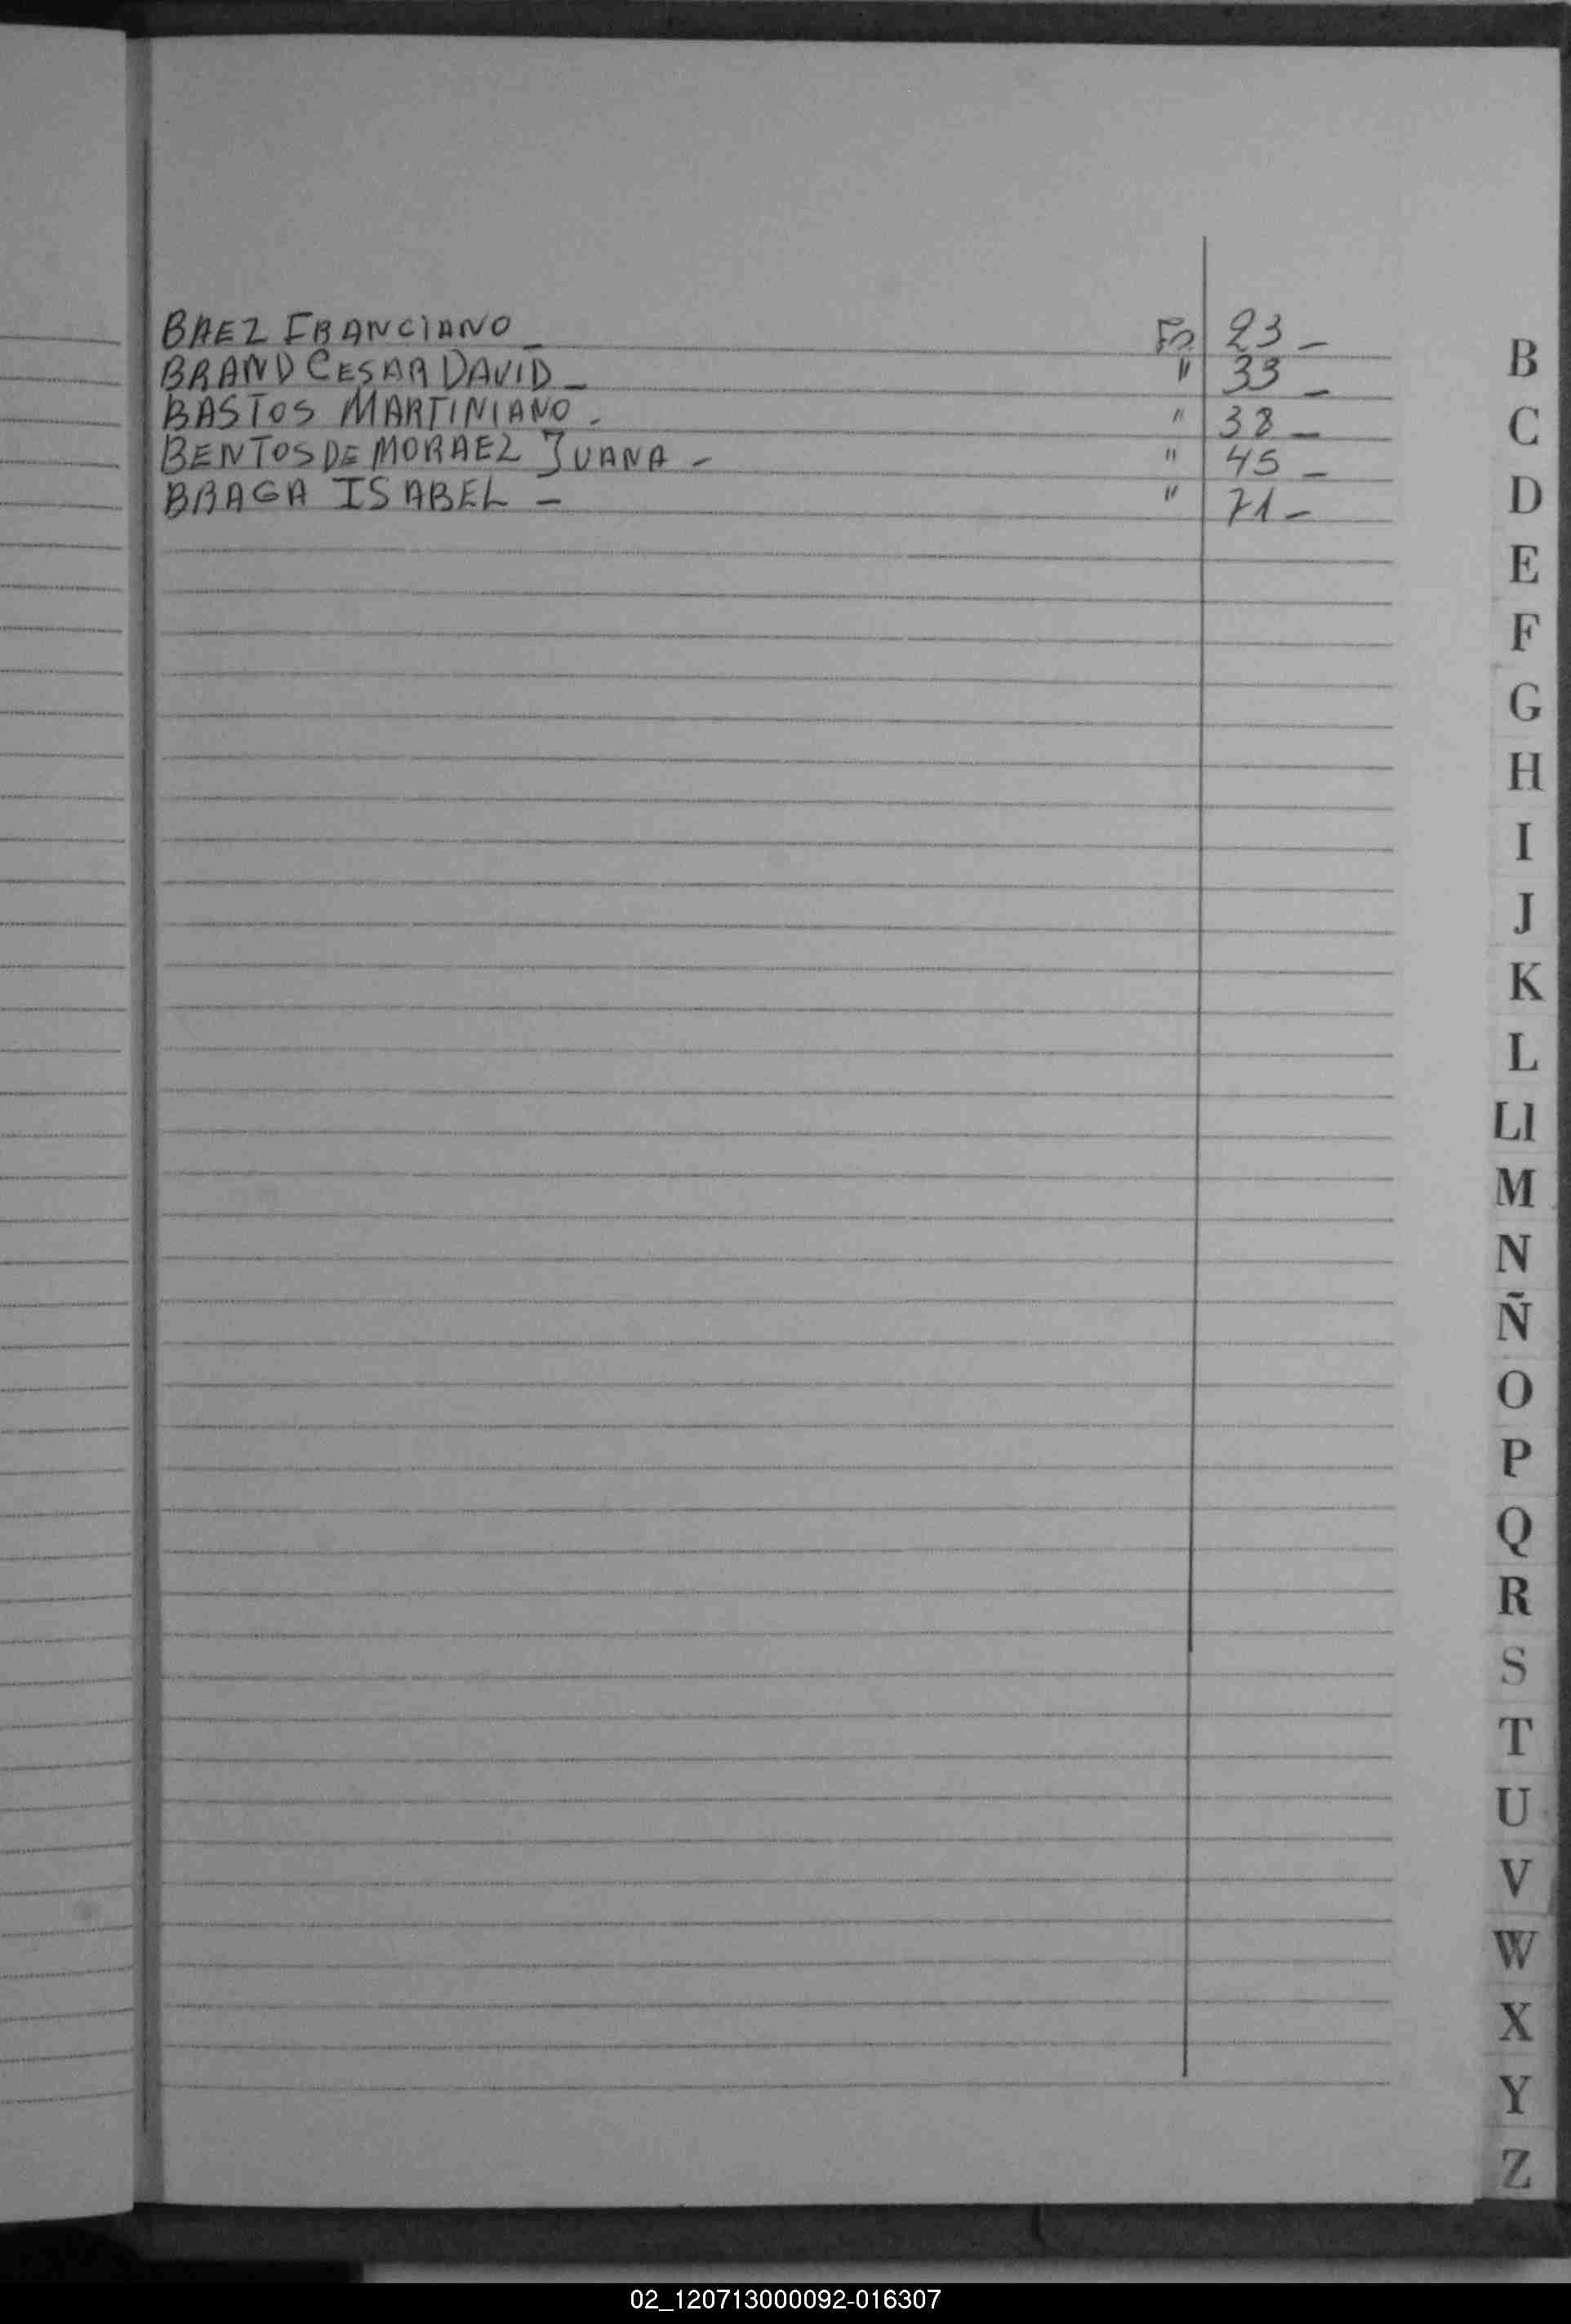 BAEZ FRANCIANO _ Fo. 23 _
BRAND CESAR DAVID _ " 33 _
BASTOS MARTINIANO - " 38 _
BENTOS DE MORAEZ JUANA - " 45 _
BRAGA ISABEL - " 71 -
B
C
D
E
F
G
H
I
J
K
L
Ll
M
N
Ñ
O
P
Q
R
S
T
U
V
W
X
Y
Z
02_120713000092-016307